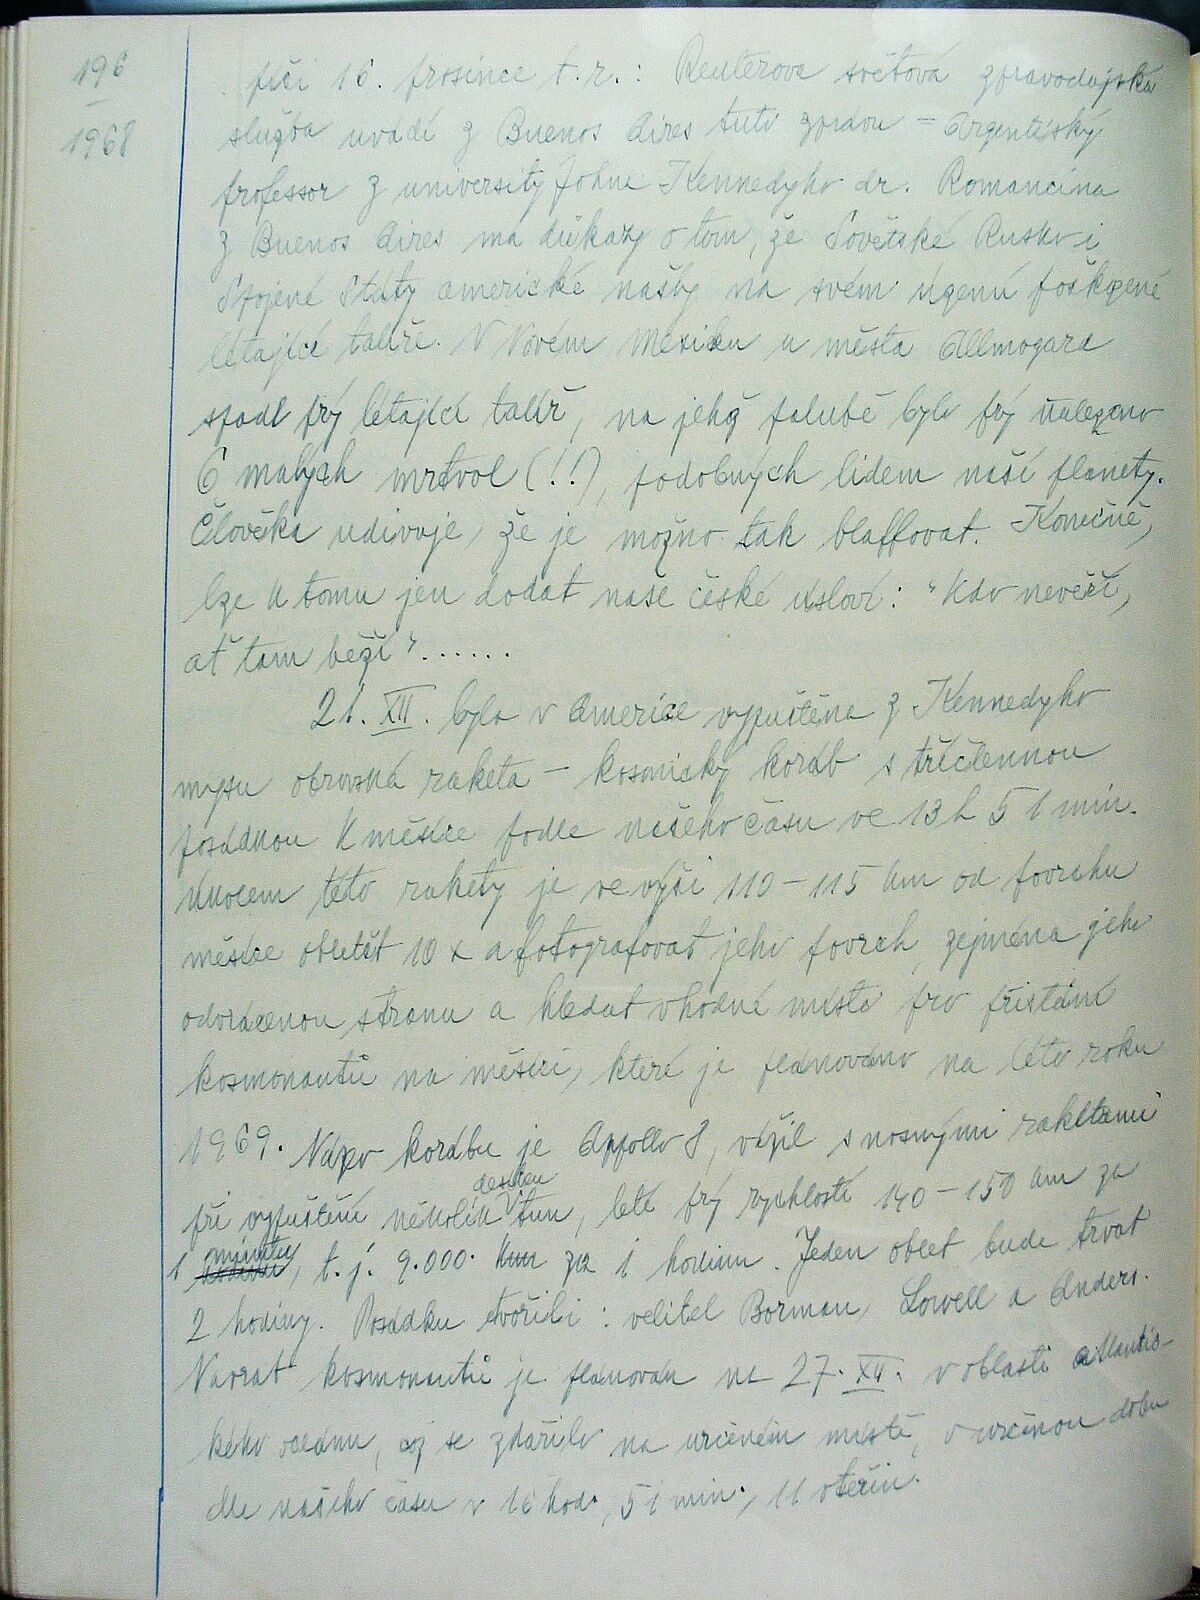 196
1968
píši 16. prosince t.r.: Reuterova světová zpravodajská
služba uvádí z Buenos Aires tuto zprávu – Argentinský
professor z university Johna Kennedyho dr. Romancina
z Buenos Aires má důkazy o tom, že Sovětské Rusko i
Spojené Státy americké našly na svém území poškozené
létající talíře. V Novém Mexiku u města Allmogara
spadl prý létající talíř, na jehož palubě bylo prý nalezeno
6 malých mrtvol (!!), podobných lidem naší planety.
Člověka udivuje, že je možno tak blaffovat. Konečně,
lze k tomu jen dodat naše české úsloví: "Kdo nevěří,
ať tam běží"......
21. XII. byla v Americe vypuštěna z Kennedyho
mysu obrovská raketa – kosmický koráb s tříčlennou
posádkou k měsíce podle našeho času ve 13 h 51 min.
Úkolem této rakety je ve výši 110–115 km od povrchu
měsíce obletět 10 x a fotografovat jeho povrch, zejména jeho
odvrácenou stranu a hledat vhodné místo pro přistání
kosmonautů na měsíci, které je plánováno na léto roku
1969. Název korábu je Apollo 8, vážil s nosnými raketami
při vypuštění několik desítek tun, letí prý rychlostí 140–150 km za
1 minutu, t.j. 9.000. km za 1 hodinu. Jeden oblet bude trvat
2 hodiny. Posádku tvořili: velitel Borman, Lowell a Anders.
Návrat kosmonautů je plánován na 27. XII. v oblasti atlantic-
kého oceánu, což se zdařilo na určeném místě, v určenou dobu
dle našeho času v 16 hod., 51 min., 11 vteřin.